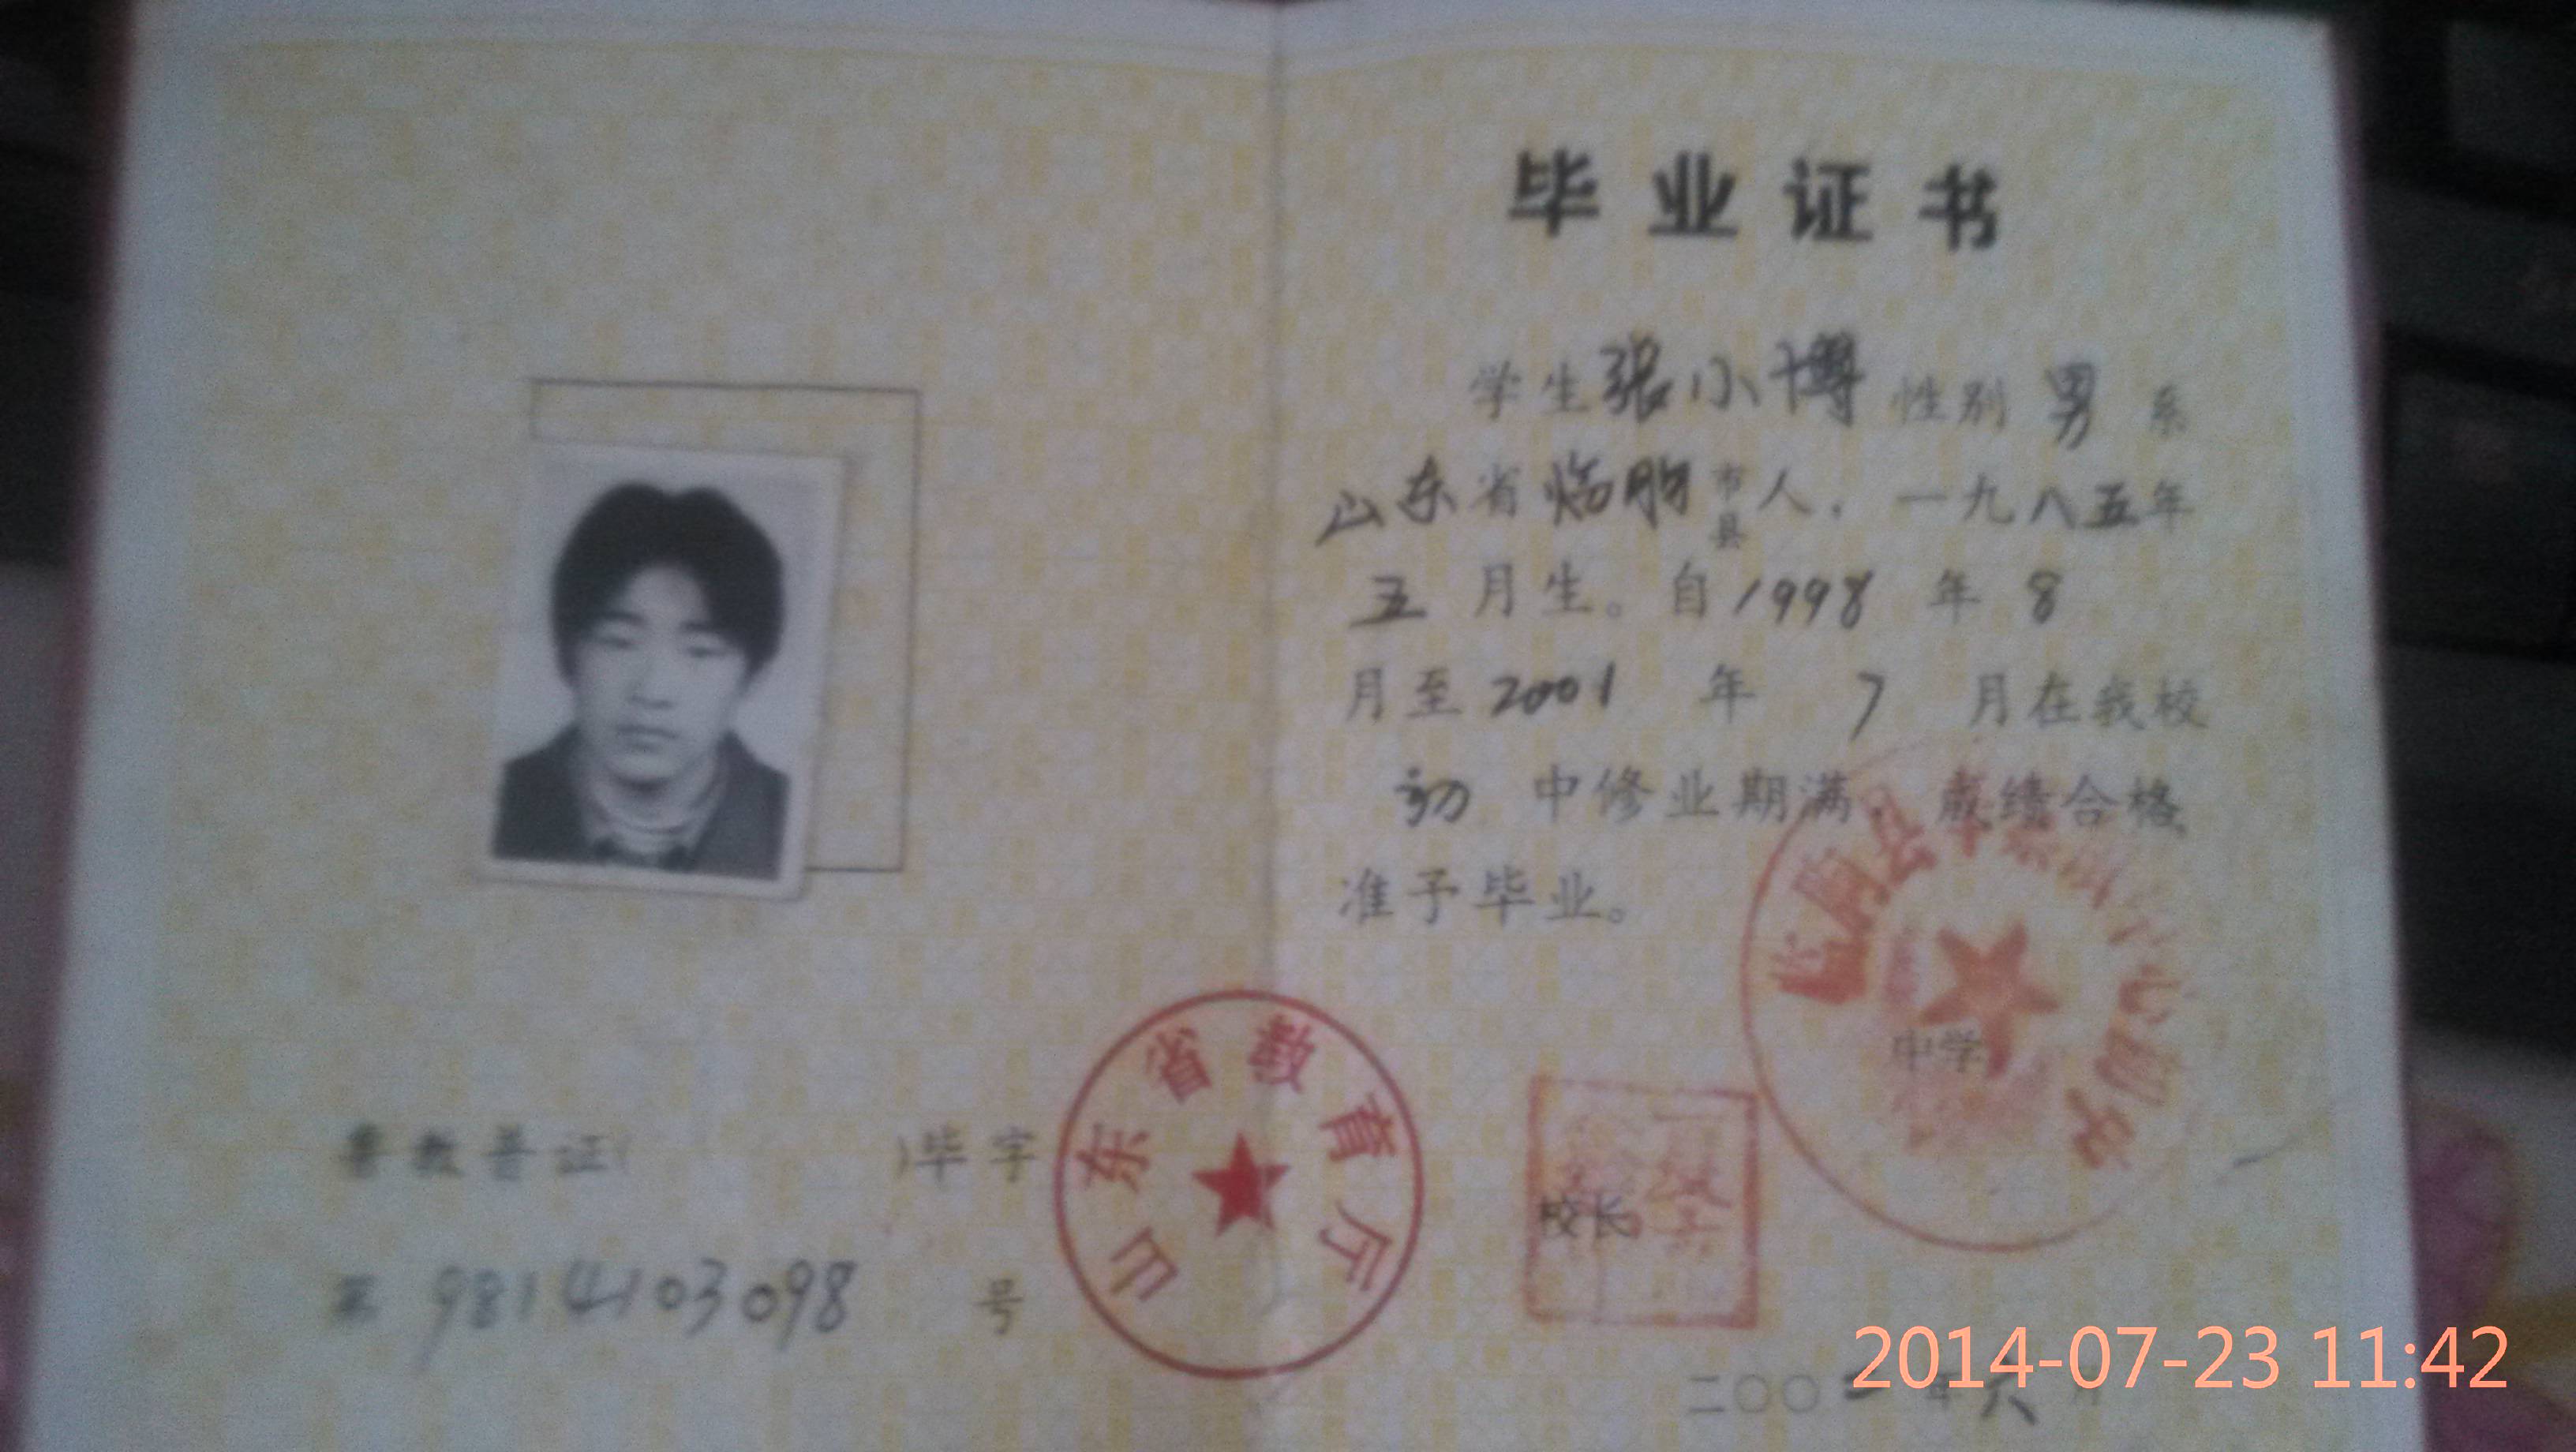 毕业证书
学生张小博 性别 男 系
山东省临朐市县人，一九八五年
五月生。自1998年8
月至2001年7月在我校
初中修业期满，成绩合格
准予毕业。
中学
校长
二〇〇一年六月
鲁教普证( )毕字
第9814103098号
山东省教育厅
2014-07-23 11:42